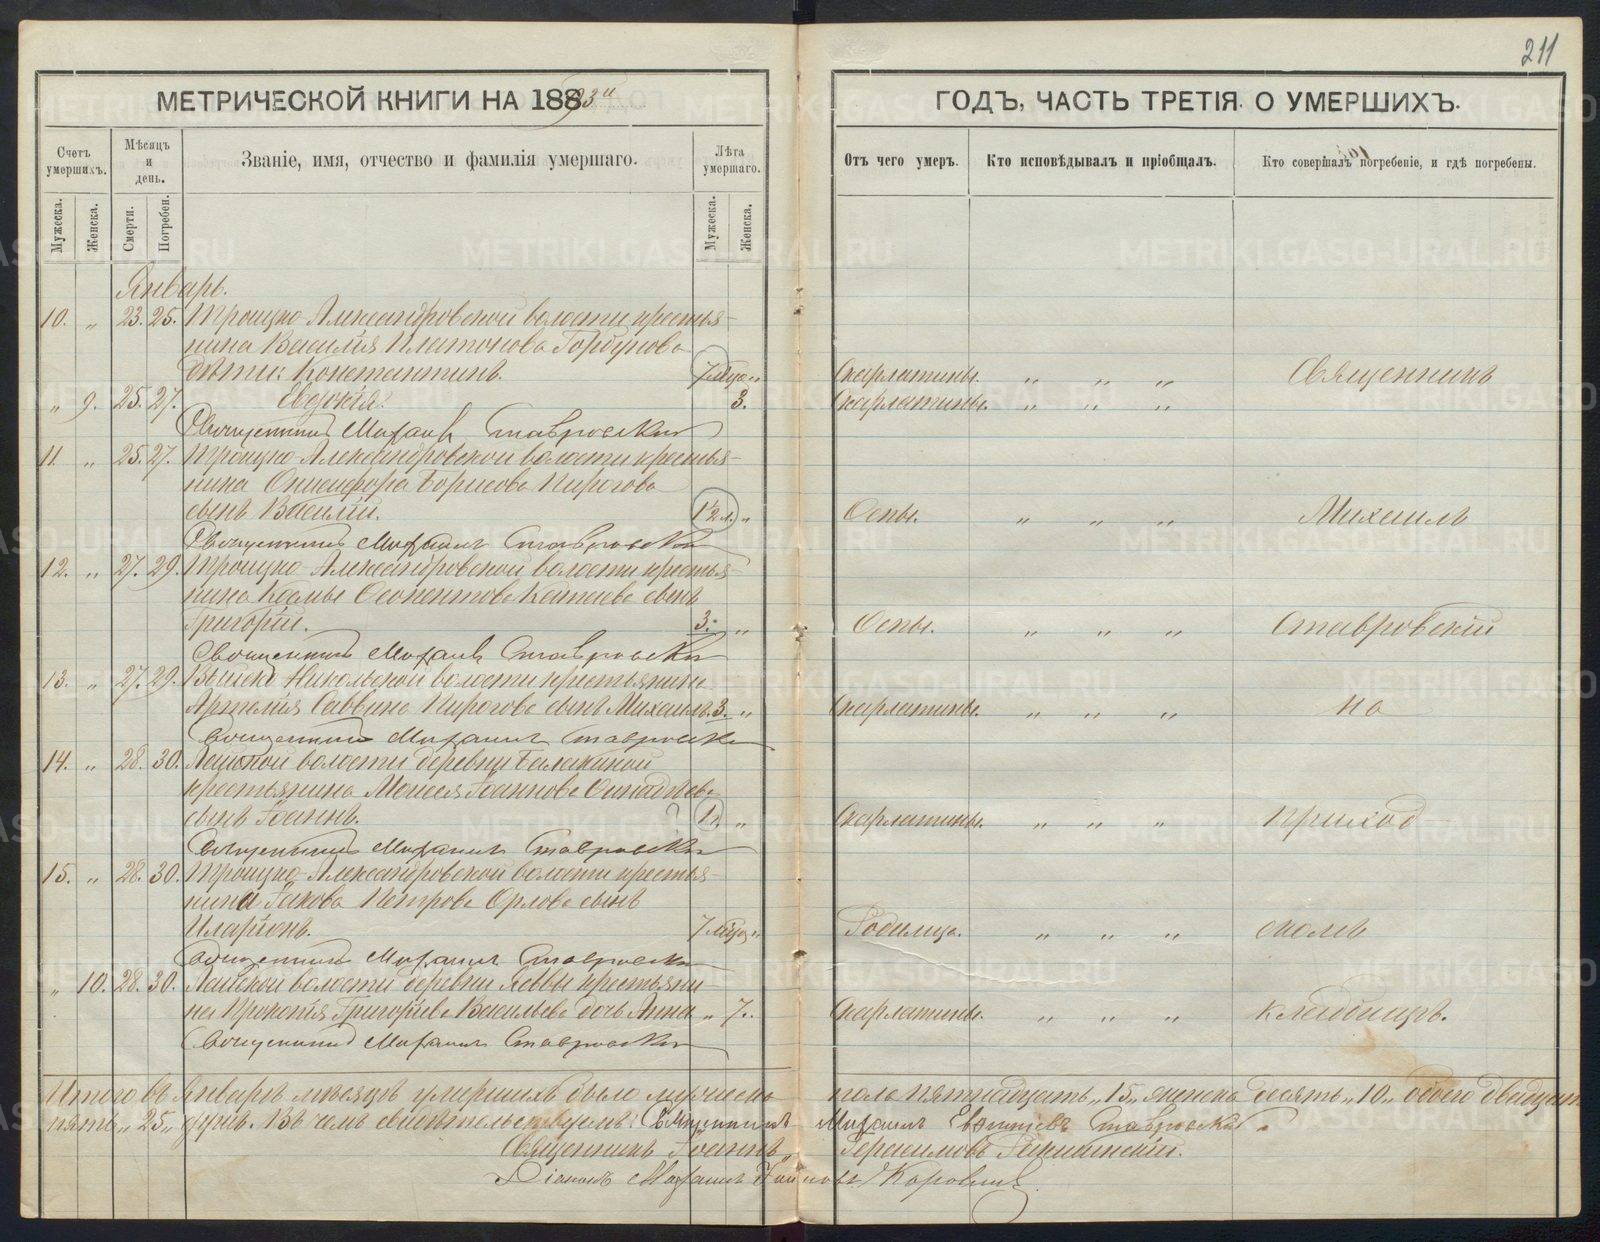 211
МЕТРИЧЕСКОЙ КНИГИ НА 1893й
ГОДЪ, ЧАСТЬ ТРЕТІЯ О УМЕРШИХЪ.
Счетъ умершихъ.
Мѣсяцъ и день.
Званіе, имя, отчество и фамилія умершаго.
Лѣта умершаго.
Отъ чего умеръ.
Кто исповѣдывалъ и пріобщалъ.
Кто совершалъ погребеніе, и гдѣ погребены.
Мужеска.
Женска.
Смерти.
Погребен.
Мужеска.
Женска.
Январь.
10. „ 23. 25. Троицко-Александровской волости крестья-
нина Василія Платонова Горбунова
дѣти: Константинъ. 7 мѣс. „ Скарлатины. „ „ „ Священникъ
„ 9. 25. 27. Евдокія. 3. Скарлатины. „ „ „
Священникъ Михаилъ Ставровскій
11. „ 25. 27. Троицко-Александровской волости крестья-
нина Онисифора Борисова Пирогова
сынъ Василій. 1½ л. „ Оспы. „ „ „ Михаилъ
Священникъ Михаилъ Ставровскій
12. „ 27. 29. Троицко-Александровской волости крестья-
нина Космы сынъ
Григорій. 3. „ Оспы. „ „ „ Ставровскій
Священникъ Михаилъ Ставровскій
13. „ 27. 29. Выйско-Никольской волости крестьянина
Артемія Саввина Пирогова сынъ Михаилъ. 3. „ Скарлатины. „ „ „ на
Священникъ Михаилъ Ставровскій
14. „ 28. 30. Лайской волости деревни Балакиной
крестьянина Моисея Іоаннова
сынъ Іоаннъ. 1. „ Скарлатины. „ „ „ приход
Священникъ Михаилъ Ставровскій
15. „ 28. 30. Троицко-Александровской волости крестья-
нина Іакова Петрова Орлова сынъ
Иларіонъ. 7 мѣс. „ Родимца. „ „ „ скомъ
Священникъ Михаилъ Ставровскій
„ 10. 28. 30. Лайской волости деревни крестьяни-
на Прокопія Григоріева Васильева дочь Анна „ 7. Скарлатины. „ „ „ кладбищѣ.
Священникъ Михаилъ Ставровскій
Итого въ Январѣ мѣсяцѣ умершихъ было мужеска пола пятнадцать „15„ женска десять „10„ обоего двадцать
пять „25„ душъ. Въ чемъ свидѣтельствуемъ: Священникъ Михаилъ Ставровскій
Священникъ Іоаннъ Герасимовъ
Діаконъ Михаилъ Коровинъ